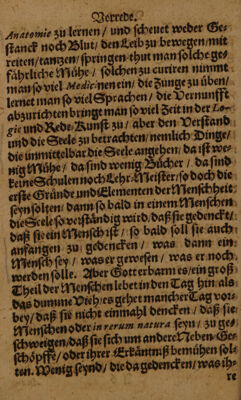 Vorrede.
Anatomie zu lernen / und scheuet weder Ge-
stanck noch Blut / den Leib zu bewegen / mit
reiten / tantzen / springen thut man solche ge-
fährliche Mühe / solchen zu curiren nimmt
man so viel Medicinen ein / die Zunge zu üben /
lernet man so viel Sprachen / die Vernunfft
abzurichten bringt man so viel Zeit in der Lo-
gic und Rede-Kunst zu / aber den Verstand
und die Seele zu betrachten / nemlich Dinge /
die unmittelbar die Seele angehen / da ist we-
nig Mühe / da sind wenig Bücher / da sind
keine Schulen noch Lehr-Meister / so doch die
erste Gründe und Elementen der Menschheit
seyn solten / dann so bald in einem Menschen
die Seele so verständig wird / daß sie gedenckt /
daß sie ein Mensch ist / so bald soll sie auch
anfangen zu gedencken / was dann ein
Mensch sey / was er gewesen / was er noch
werden solle. Aber Gott erbarm es / ein groß
Theil der Menschen lebet in den Tag hin als
das dumme Vieh / es gehet mancher Tag vor-
bey / daß sie nicht einmahl dencken / daß sie
Menschen oder in rerum natura seyn / zu ge-
schweigen / daß sie sich um andere Neben-Ge-
schöpffe / oder ihrer Erkäntniß bemühen sol-
ten. Wenig seynd / die da gedencken / was ih-
re